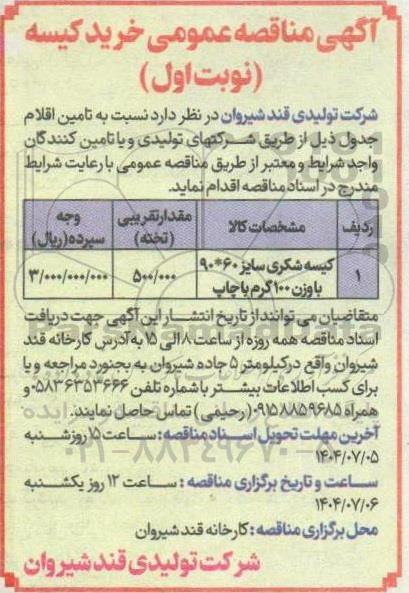 آگهی مناقصه عمومی خرید کیسه
(نوبت اول)
شرکت تولیدی قند شیروان در نظر دارد نسبت به تامین اقلام
جدول ذیل از طریق شرکتهای تولیدی و یا تامین کنندگان
واجد شرایط و معتبر از طریق مناقصه عمومی با رعایت شرایط
مندرج در اسناد مناقصه اقدام نماید.
ردیف مشخصات کالا مقدار تقریبی (تخته) وجه سپرده (ریال)
۱ کیسه شکری سایز ۶۰*۹۰ با وزن ۱۰۰ گرم با چاپ ۵۰۰/۰۰۰ ۳/۰۰۰/۰۰۰/۰۰۰
متقاضیان می توانند از تاریخ انتشار این آگهی جهت دریافت
اسناد مناقصه همه روزه از ساعت ۸ الی ۱۵ به آدرس کارخانه قند
شیروان واقع در کیلومتر ۵ جاده شیروان به بجنورد مراجعه و یا
برای کسب اطلاعات بیشتر با شماره تلفن ۰۵۸۳۶۳۵۳۶۶۶ و
همراه ۰۹۱۵۸۸۵۹۶۸۵ (رحیمی) تماس حاصل نمایند.
آخرین مهلت تحویل اسناد مناقصه: ساعت ۱۵ روز شنبه
۱۴۰۴/۰۷/۰۵
ساعت و تاریخ برگزاری مناقصه: ساعت ۱۲ روز یکشنبه
۱۴۰۴/۰۷/۰۶
محل برگزاری مناقصه: کارخانه قند شیروان
شرکت تولیدی قند شیروان